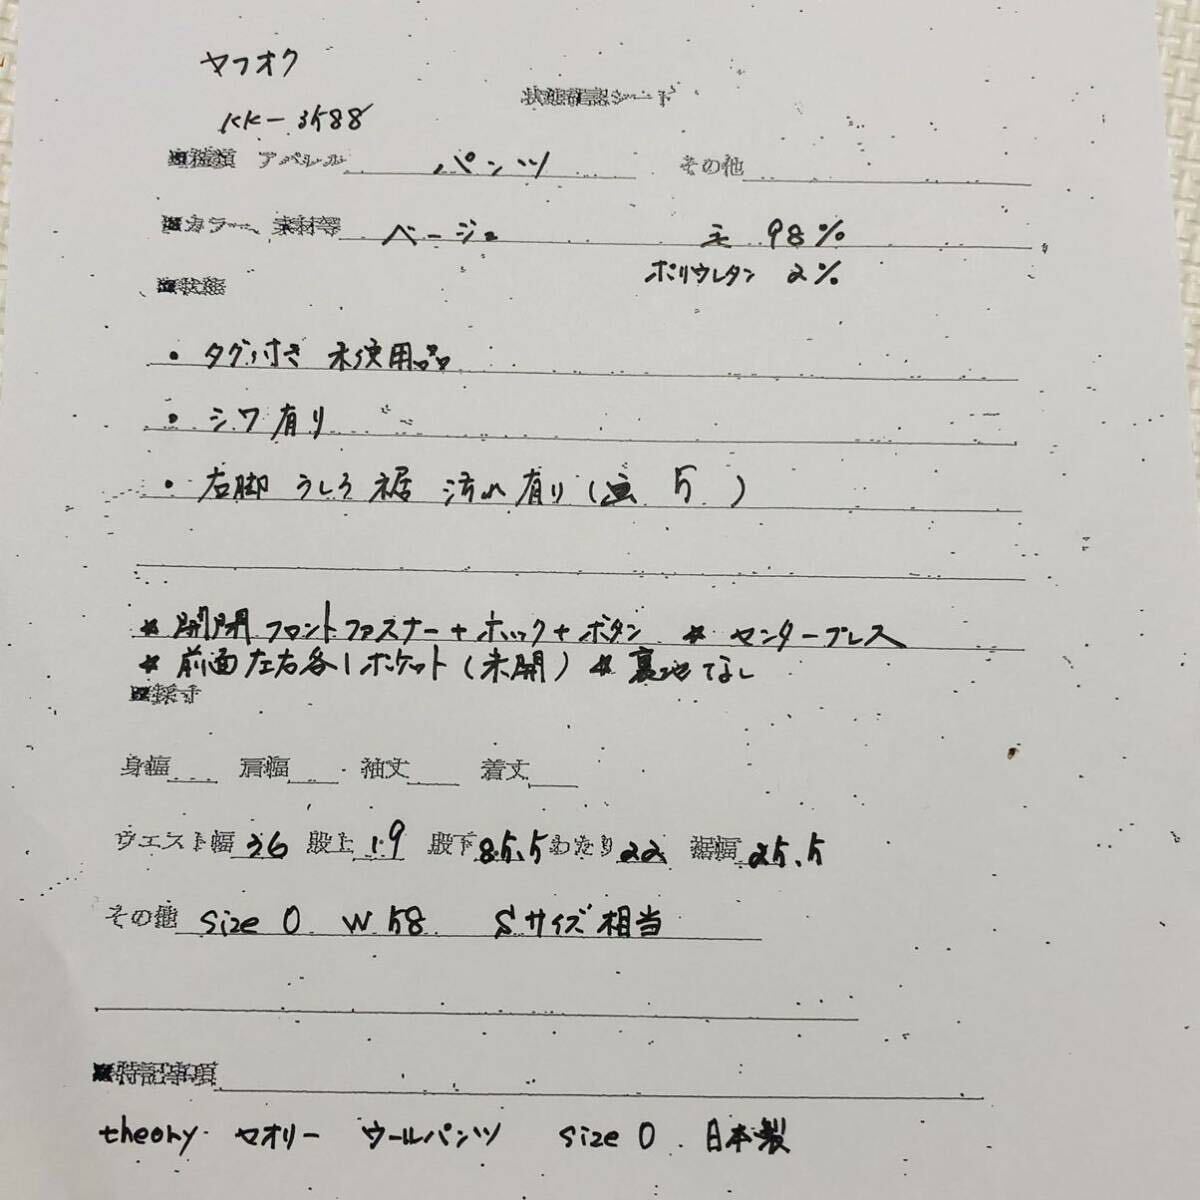 ヤフオク
状態確認シート
KK-3588
■種類 アパレル パンツ その他
■カラー、素材等 ベージュ 毛 98%
ポリウレタン 2%
■状態
・タグ付き 未使用品
・シワ有り
・右脚 うしろ 裾 汚れ有り(画 5 )
* 開閉 フロントファスナー+ホック+ボタン * センタープレス
* 前面左右各1ポケット(未開) * 裏地なし
■採寸
身幅 肩幅 袖丈 着丈
ウエスト幅 36 股上 19 股下 85.5 わたり 22 裾幅 25.5
その他 size 0 W 58 Sサイズ相当
■特記事項
theory セオリー ウールパンツ size 0 日本製